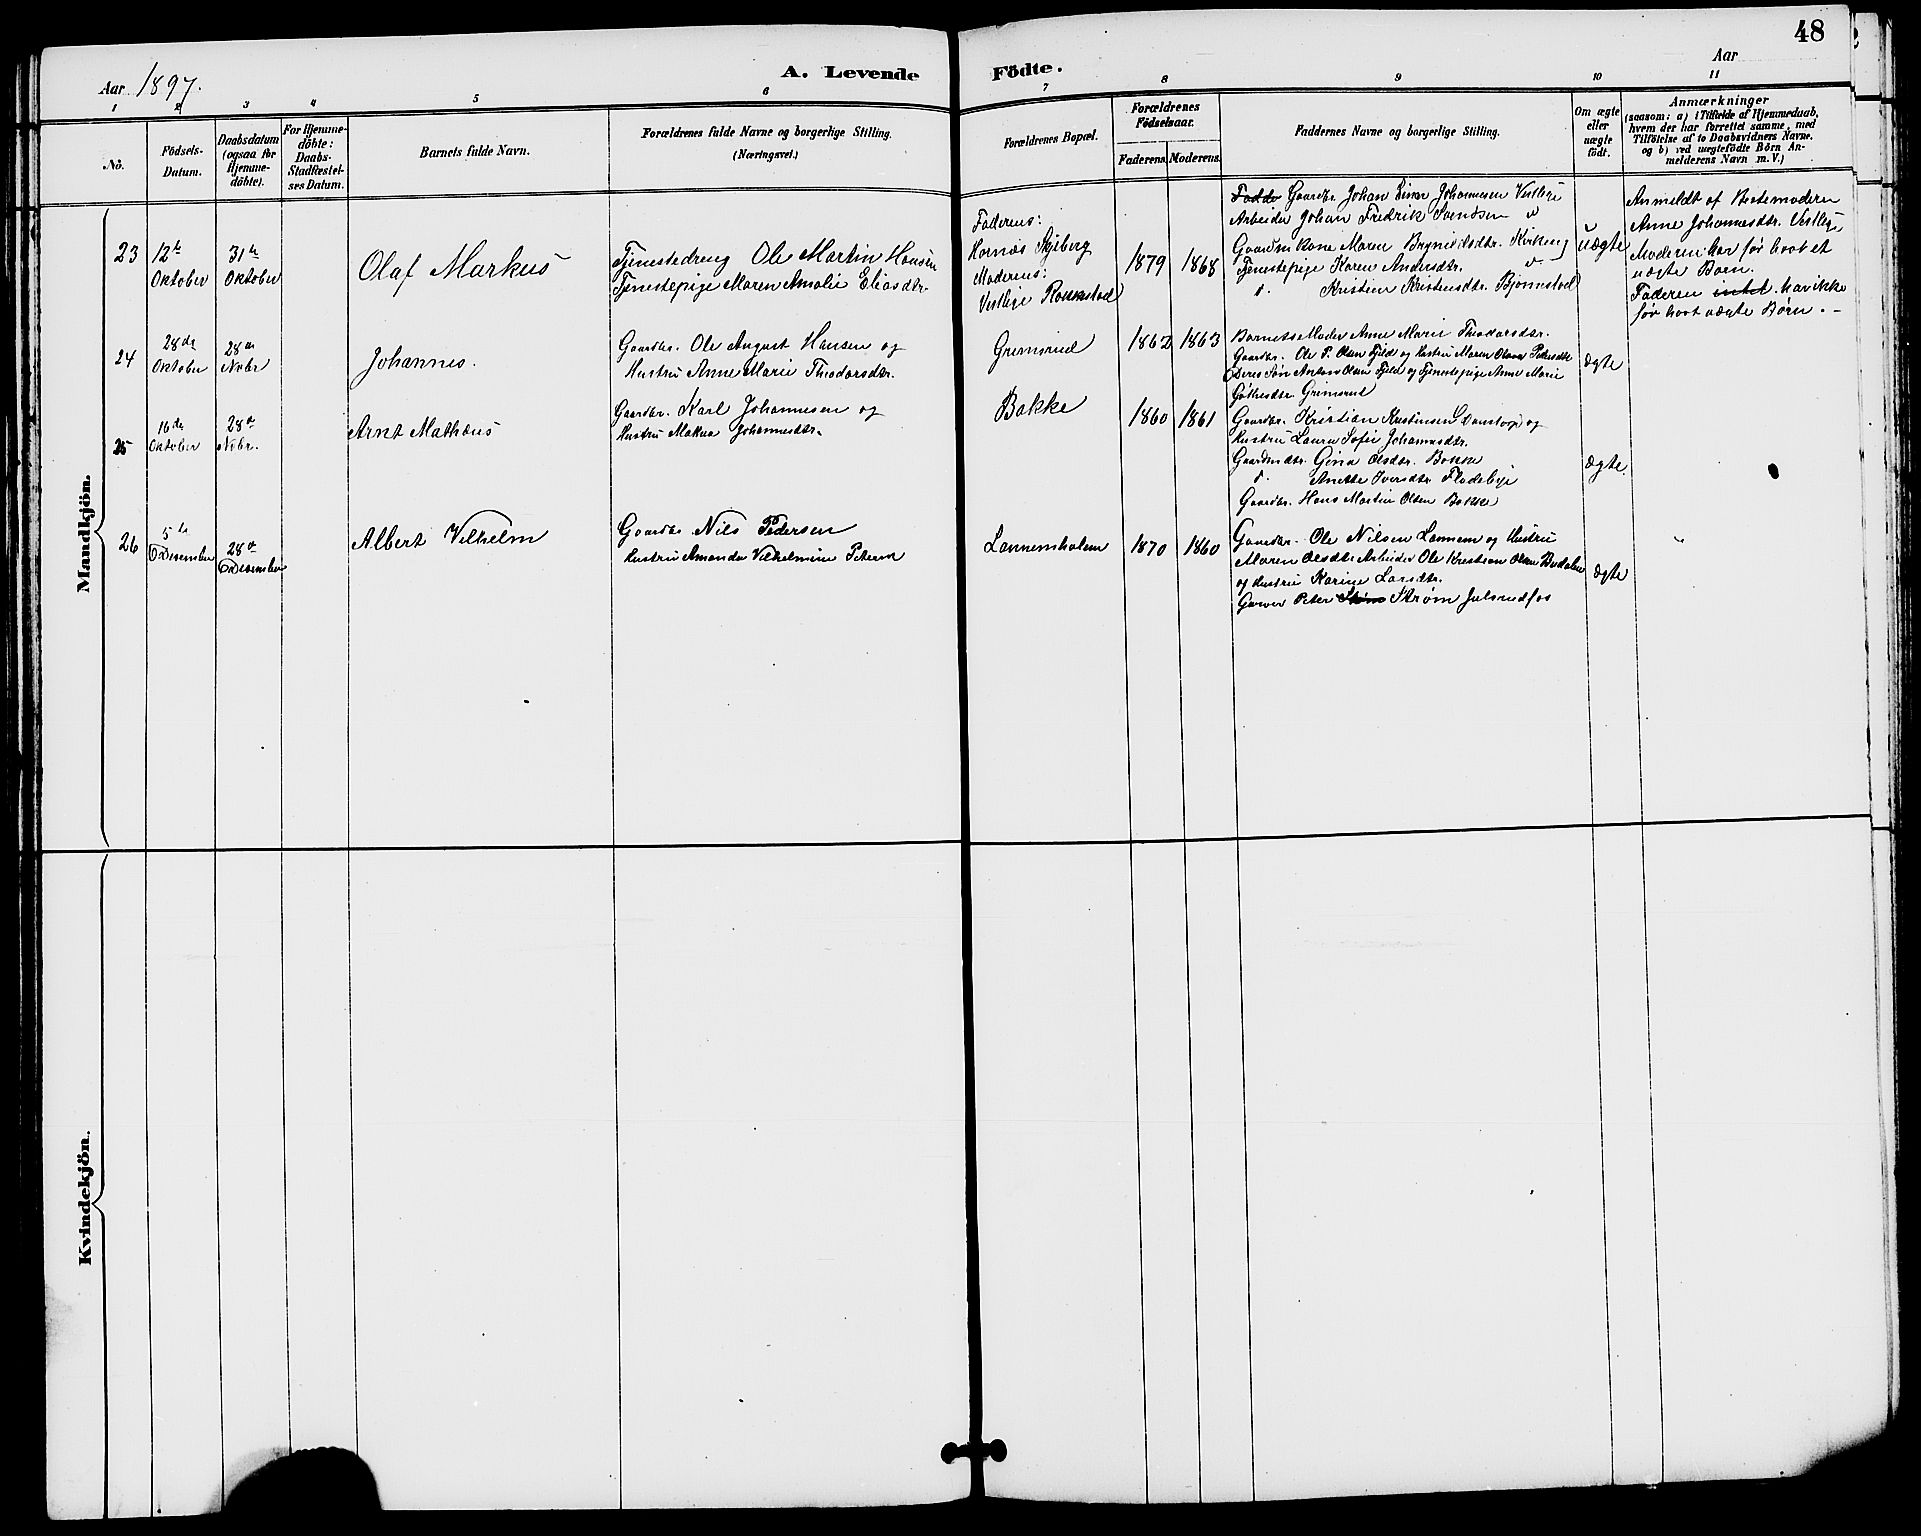 48
Aar 1897.
A. Levende Födte.
Aar
1 2 3 4 5 6 7 8 9 10 11
No.
Födsels-
Datum.
Daabsdatum
(ogsaa for
Hjemme-
döbte).
For Hjemme-
döbte:
Daabs-
Stadfæstel-
ses Datum.
Barnets fulde Navn.
Forældrenes fulde Navne og borgerlige Stilling.
(Næringsvei.)
Forældrenes Bopæl.
Forældrenes
Födselsaar.
Faderens. Moderens.
Faddernes Navne og borgerlige Stilling.
Om ægte
eller
uægte
födt.
Anmærkninger
(saasom: a) i Tilfælde af Hjemmedaab,
hvem der har forrettet samme, med
Tilföielse af to Daabsvidners Navne,
og b) ved uægtefödte Börn An-
melderens Navn m. V.)
Mandkjön.
23
12te
Oktober
31te
Oktober
Olaf Markus
Tjenestedreng Ole Martin Hansen
Tjenestepige Maren Amalie Eliasdtr.
Faderens:
Hornæs Skjeberg
Moderens:
Vestlige Rokkestad
1879
1868
Fadde Gaardbr. Johan Einar Johannesen Vestlige
Arbeider Johan Fredrik Svendsen
Gaardm.kone Maren Brynildsdtr. Kirkeng
Tjenestepige Karen Andersdtr.
d. Kristine Kristensdtr. Bjønnstad
uægte
Anmeldt af Bestemoderen
Anne Johannesdtr. Vestlige
Moderen har før havt et
uægte Barn.
Faderen intet har ikke
før havt uægte Børn. -
24
28de
Oktober
28de
Nvbr
Johannes.
Gaardbr. Ole August Hansen og
Hustru Anne Marie Theodorsdtr.
Grimsrud
1862
1863
Barnets Moder Anne Marie Theodorsdtr.
Gaardbr. Ole P. Olsen Fjeld og Hustru Maren Olava Pedersdtr
Deres Søn Anton Olsen Fjeld og Tjenestepige Anne Marie
Grimsrud
ægte
25
16de
Oktober
28de
Nvbr.
Arnt Mathæus
Gaardbr. Karl Johannesen og
Hustru Johannesdtr.
Bakke
1860
1861
Gaardbr. Kristian Kristensen Damtorp og
Hustru Laura Sofie Johannesdtr.
Gaardmdtr. Gina Olsdtr. Bakke
d. Anette Iversdtr. Fladebye
Gaardbr. Hans Martin Olsen Bakke
ægte.
26
5te
December
28de
December
Albert Vilhelm
Gaardbr Nils Pedersen
Hustru Amanda Vilhelmine Petersd
Lannemholem
1870
1860
Gaardbr. Ole Nilsen Lannem og Hustru
Maren Olsdtr Arbeider Ole Kristian Olsen Budalen
og Hustru Karine Larsdtr.
Garver Peter Strøm Julsrudfos
ægte
"
Kvindekjön.